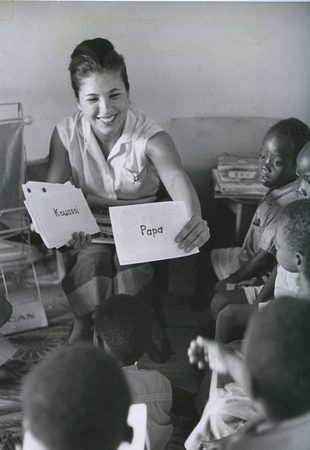 Kouassi
Papa
CAN